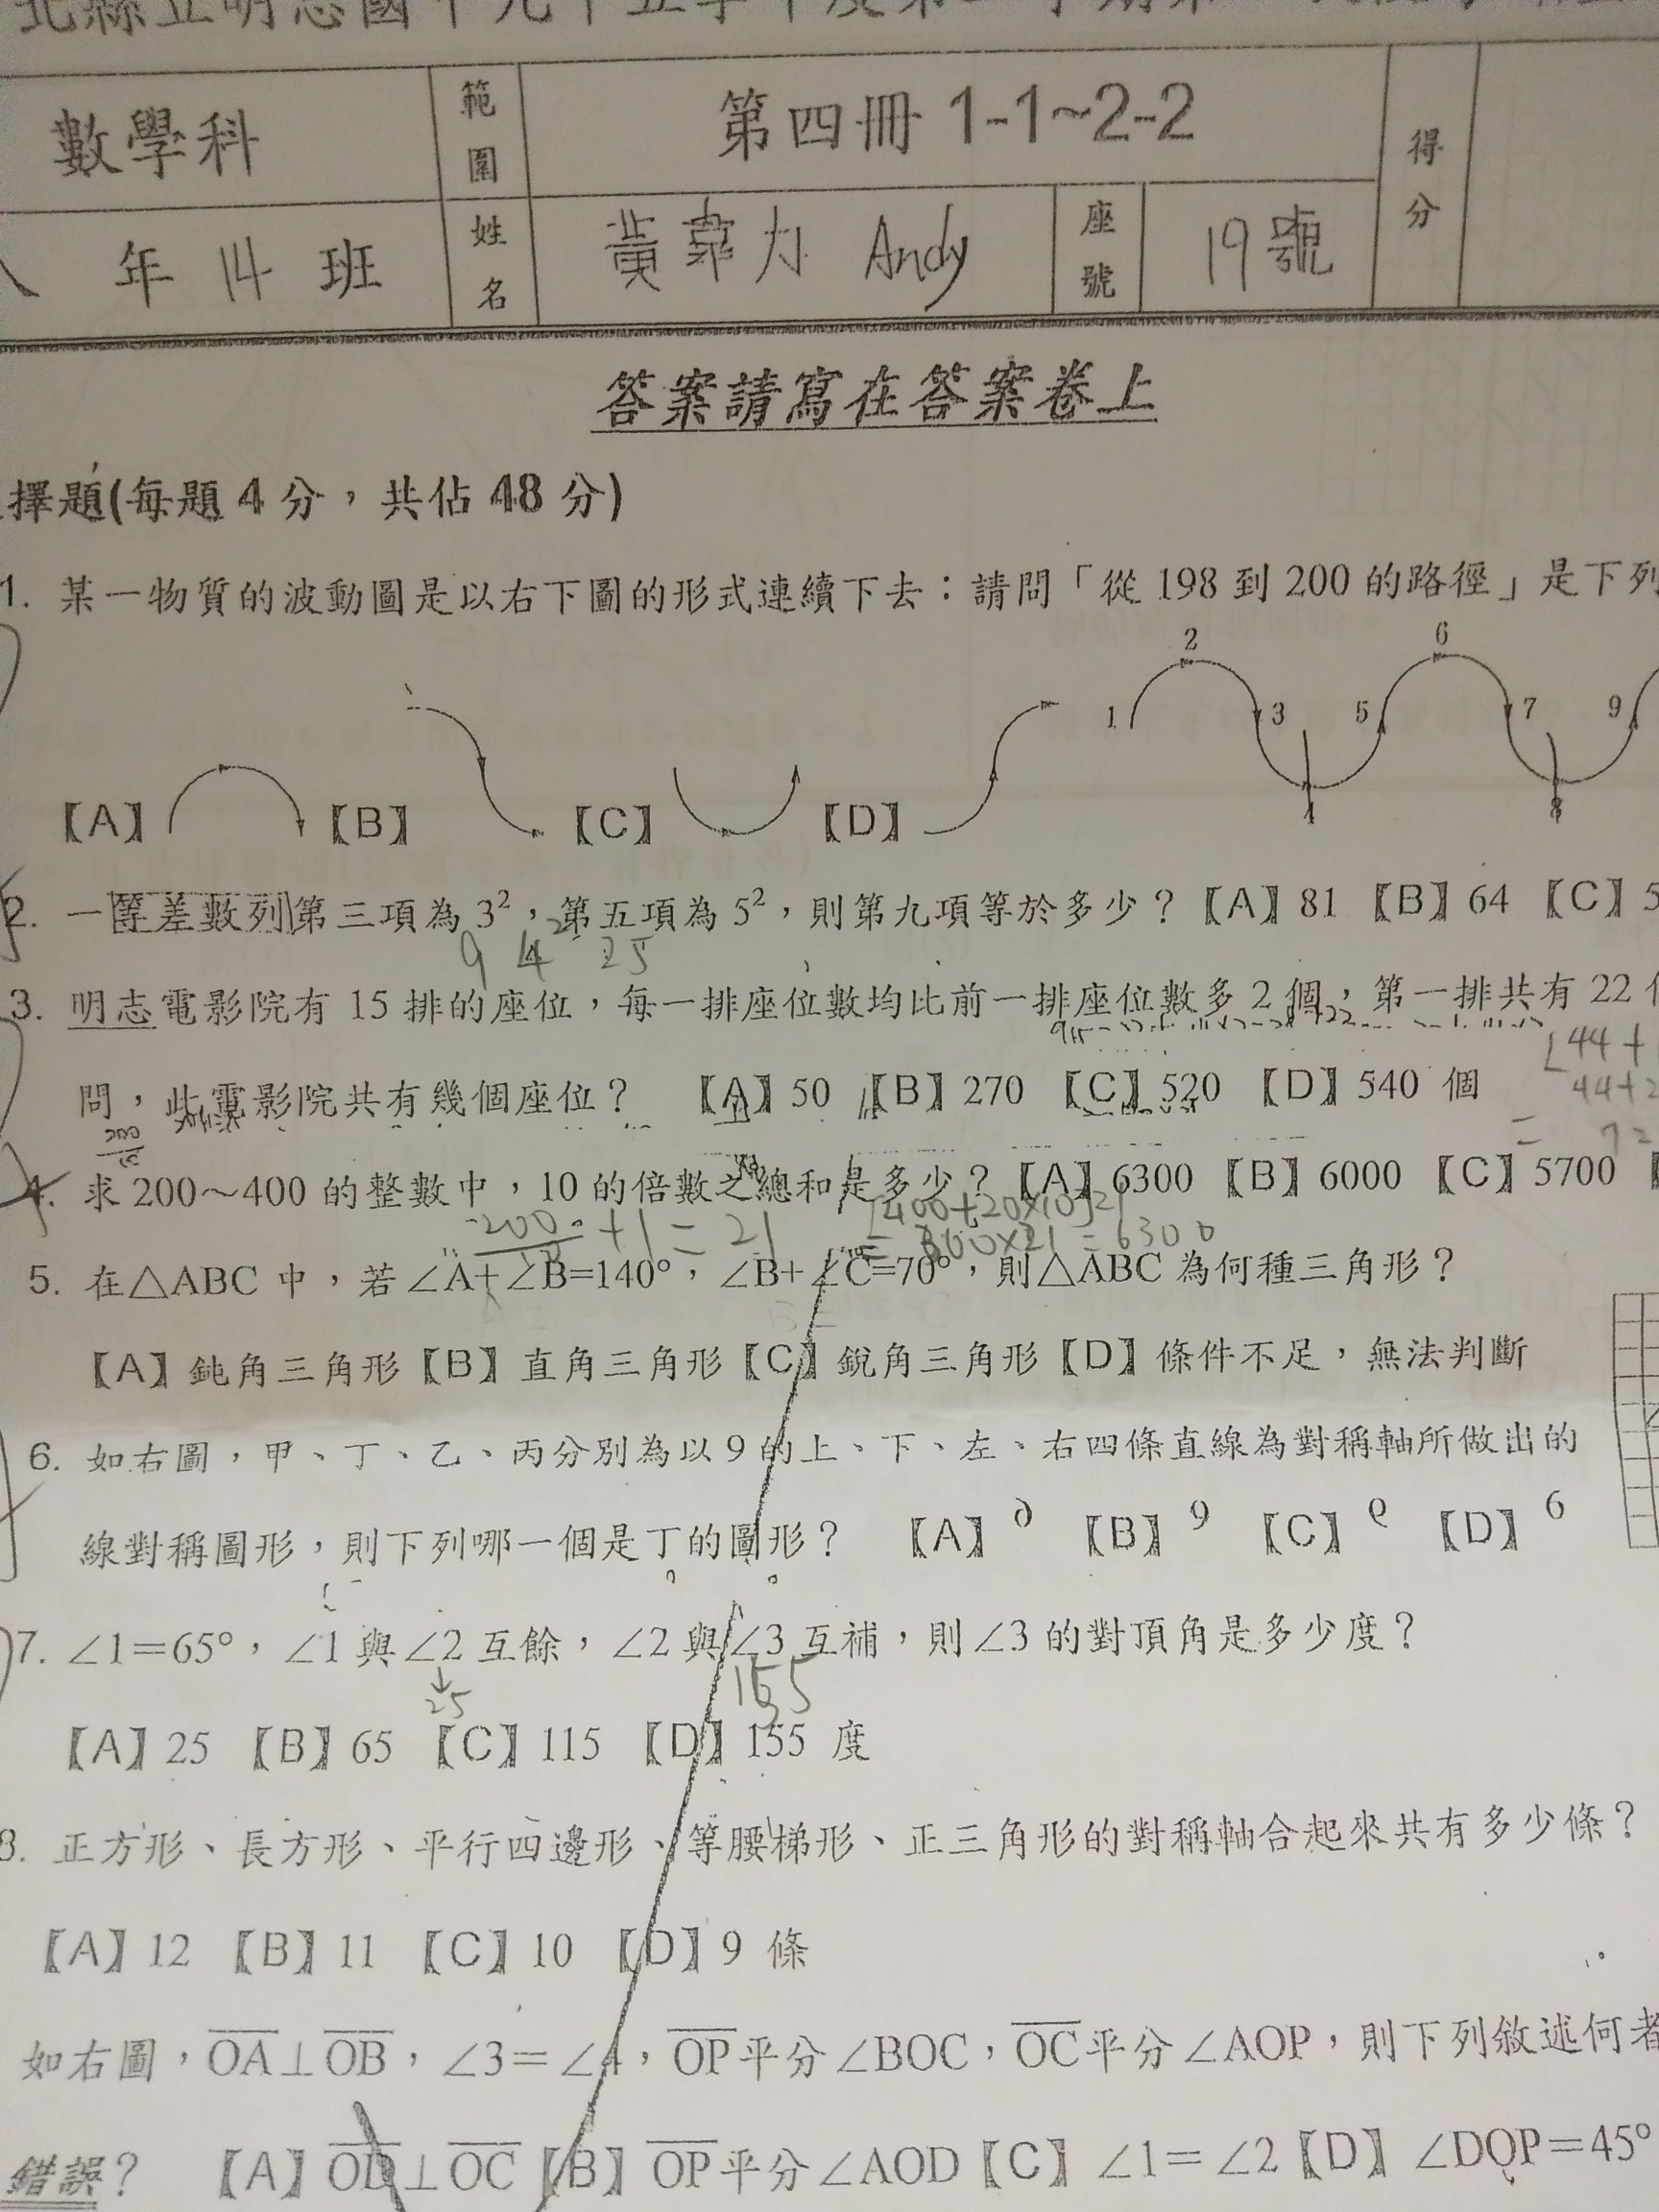 數學科
範圍
第四冊 1-1~2-2
得分
年 14 班
姓名
Andy
座號
19號
答案請寫在答案卷上
擇題(每題 4 分，共佔 48 分)
1. 某一物質的波動圖是以右下圖的形式連續下去：請問「從 198 到 200 的路徑」是下列
1 2 3 4 5 6 7 8 9
【A】 【B】 【C】 【D】
2. 一等差數列第三項為 3²，第五項為 5²，則第九項等於多少？【A】81 【B】64 【C】5
9 4² 25
3. 明志電影院有 15 排的座位，每一排座位數均比前一排座位數多 2 個，第一排共有 22
問，此電影院共有幾個座位？ 【A】50 【B】270 【C】520 【D】540 個
4. 求 200～400 的整數中，10 的倍數之總和是多少？【A】6300 【B】6000 【C】5700
+1=21
=300×21=6300
5. 在△ABC 中，若∠A+∠B=140°，∠B+∠C=70°，則△ABC 為何種三角形？
【A】鈍角三角形【B】直角三角形【C】銳角三角形【D】條件不足，無法判斷
6. 如右圖，甲、丁、乙、丙分別為以 9 的上、下、左、右四條直線為對稱軸所做出的
線對稱圖形，則下列哪一個是丁的圖形？ 【A】 【B】9 【C】 【D】6
7. ∠1＝65°，∠1 與∠2 互餘，∠2 與∠3 互補，則∠3 的對頂角是多少度？
25
【A】25 【B】65 【C】115 【D】155 度
8. 正方形、長方形、平行四邊形、等腰梯形、正三角形的對稱軸合起來共有多少條？
【A】12 【B】11 【C】10 【D】9 條
如右圖，OA⊥OB，∠3＝∠4，OP平分∠BOC，OC平分∠AOP，則下列敘述何者
錯誤？ 【A】OD⊥OC【B】OP平分∠AOD【C】∠1＝∠2【D】∠DOP＝45°